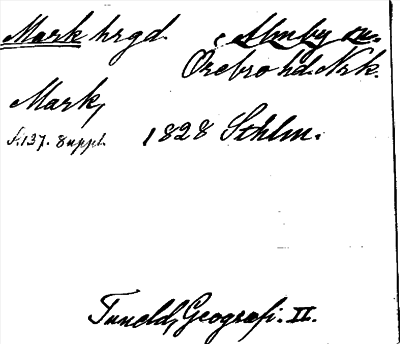 Mark hrgd. Almby sn.
Örebro hd. Nrk.
Mark,
s. 137. Suppl. 1828 Sthlm.
Tuneld, Geografi. II.